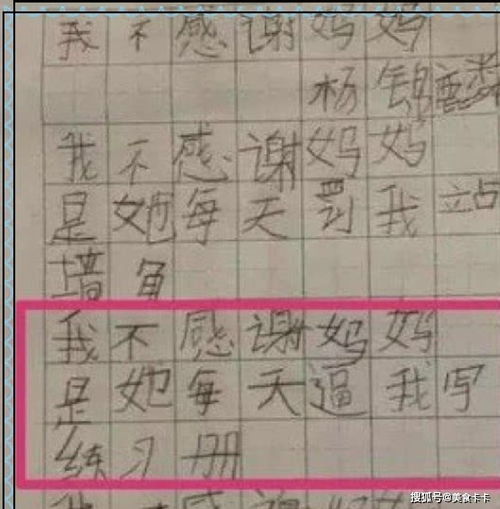 我不感谢妈妈
杨锦
我不感谢妈妈
是她每天罚我站
墙角
我不感谢妈妈
是她每天逼我写
练习册
我不感谢妈妈
搜狐号@美食卡卡